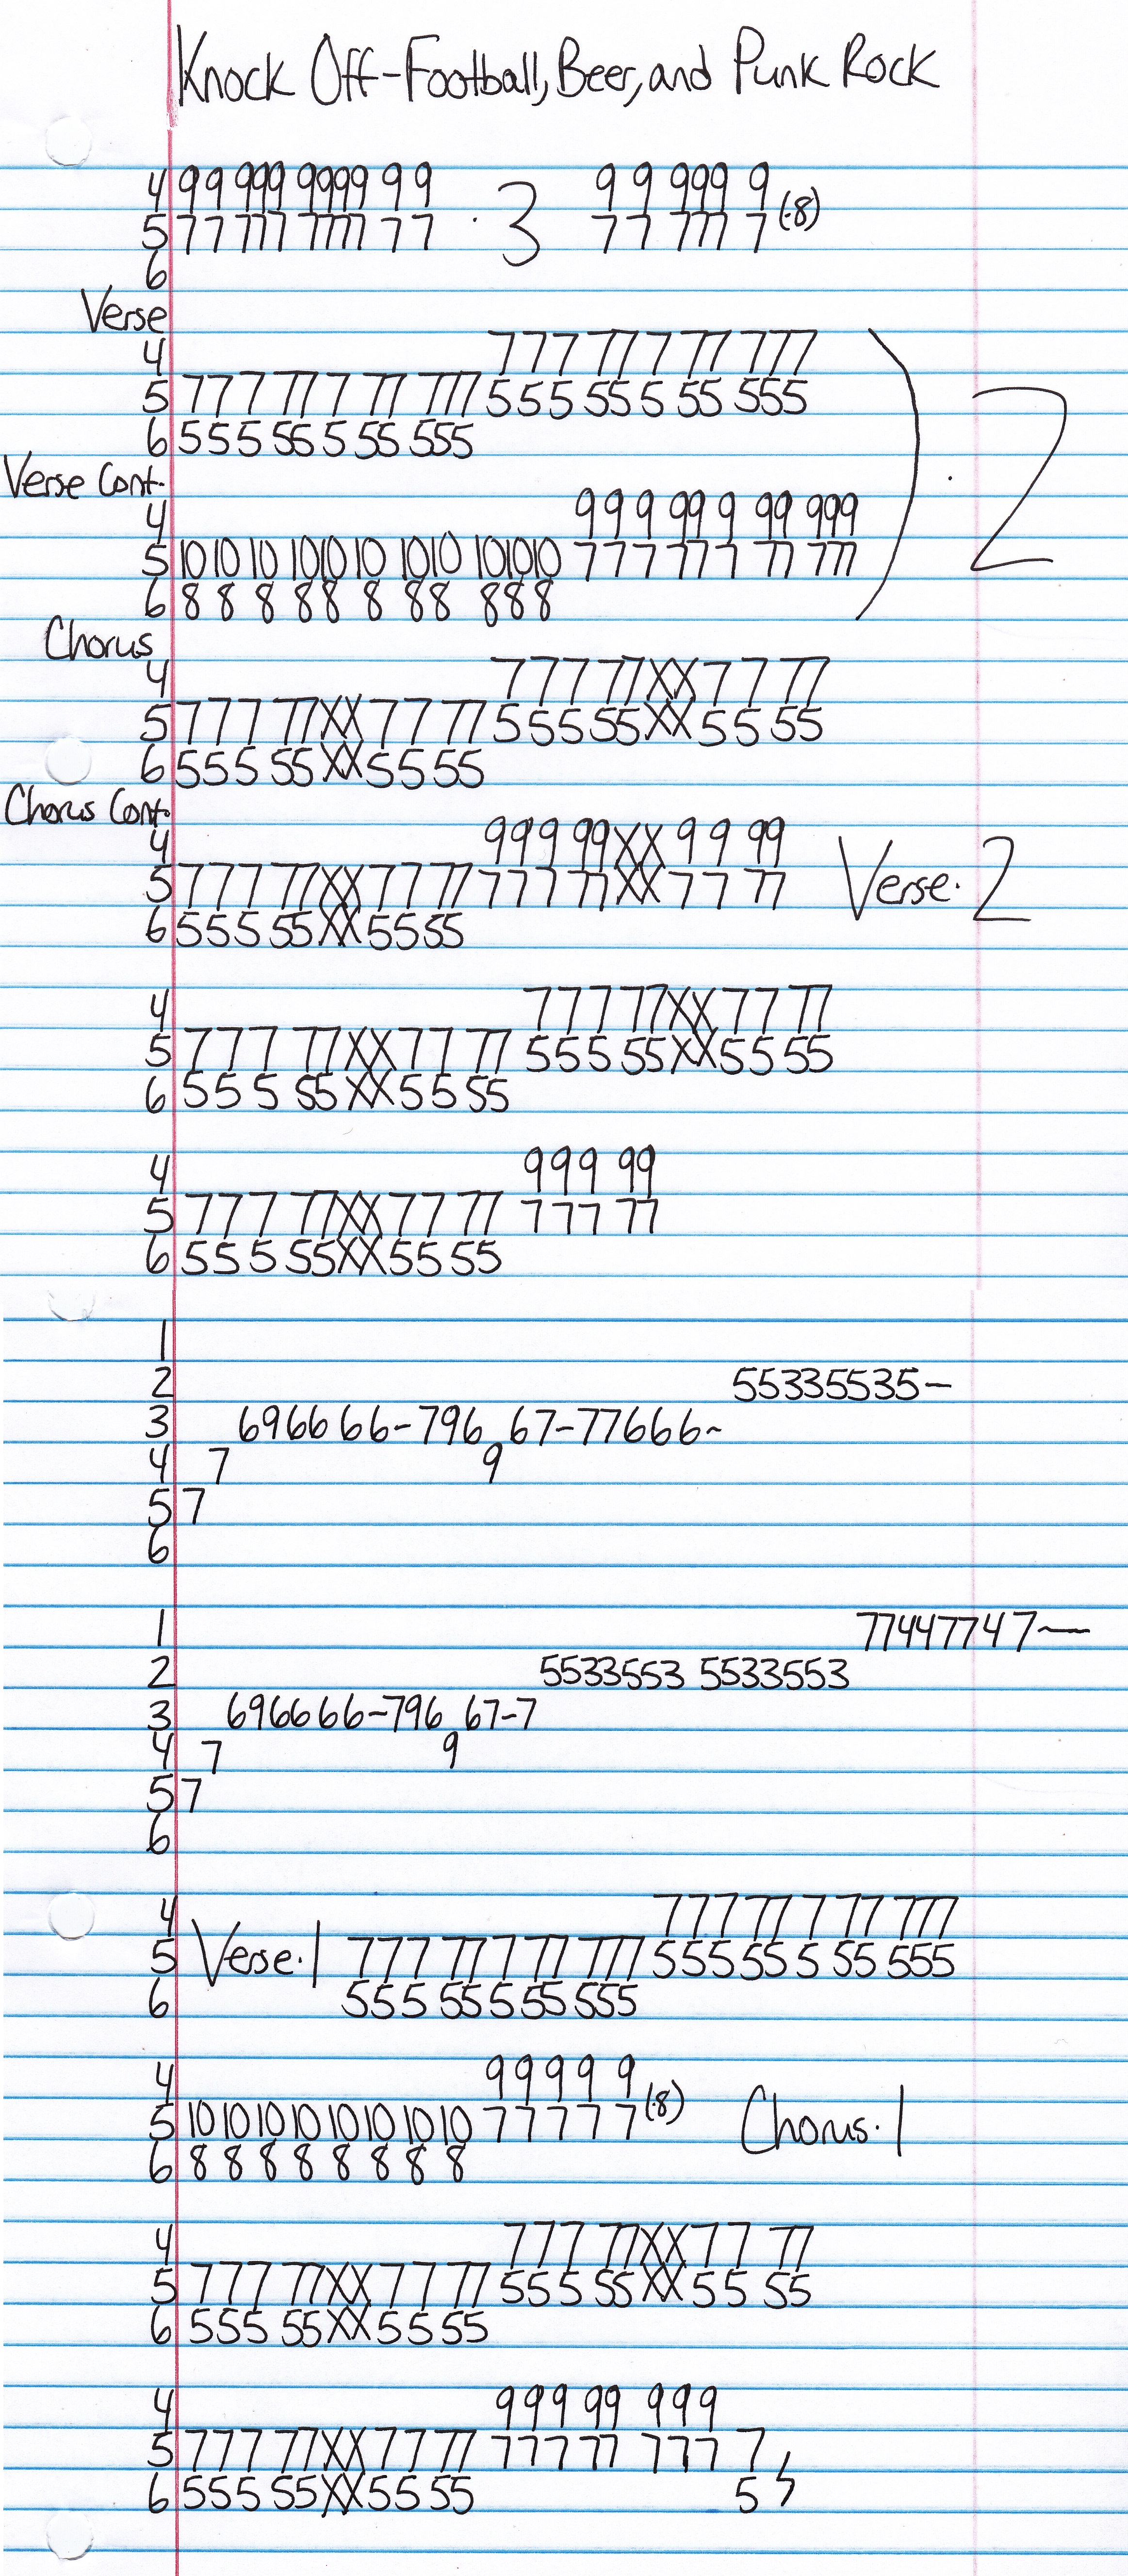 Knock Off-Football, Beer, and Punk Rock
4 99 999 9999 9 9 9 9 999 9
5 77 777 7777 7 7 · 3 7 7 777 7 (·8)
6
Verse
4 777 77 7 77 777
5 777 77 7 77 777 555 55 5 55 555
6 555 55 5 55 555 ) · 2
Verse Cont.
4 999 99 9 99 999
5 10 10 10 10 10 10 10 10 10 10 10 777 77 7 77 777
6 8 8 8 8 8 8 8 8 8 8 8
Chorus
4 777 77XX77 77
5 777 77XX77 77 555 55XX55 55
6 555 55XX55 55
Chorus Cont.
4 999 99XX99 99
5 777 77XX77 77 777 77XX77 77 Verse·2
6 555 55XX55 55
4 777 77XX77 77
5 777 77XX77 77 555 55XX55 55
6 555 55XX55 55
4 999 99
5 777 77XX77 77 777 77
6 555 55XX55 55
1
2 55335535-
3 6966 66-796 67-77666~
4 7 9
5 7
6
1 77447747—
2 5533553 5533553
3 6966 66-796 67-7
4 7 9
5 7
6
4 777 77 7 77 777
5 Verse·1 777 77 7 77 777 555 55 5 55 555
6 555 55 5 55 555
4 9 9 9 9 9
5 10 10 10 10 10 10 10 10 7 7 7 7 7 (·8) Chorus·1
6 8 8 8 8 8 8 8 8
4 777 77XX77 77
5 777 77XX77 77 555 55XX55 55
6 555 55XX55 55
4 999 99 999
5 777 77XX77 77 777 77 777 7
6 555 55XX55 55 5